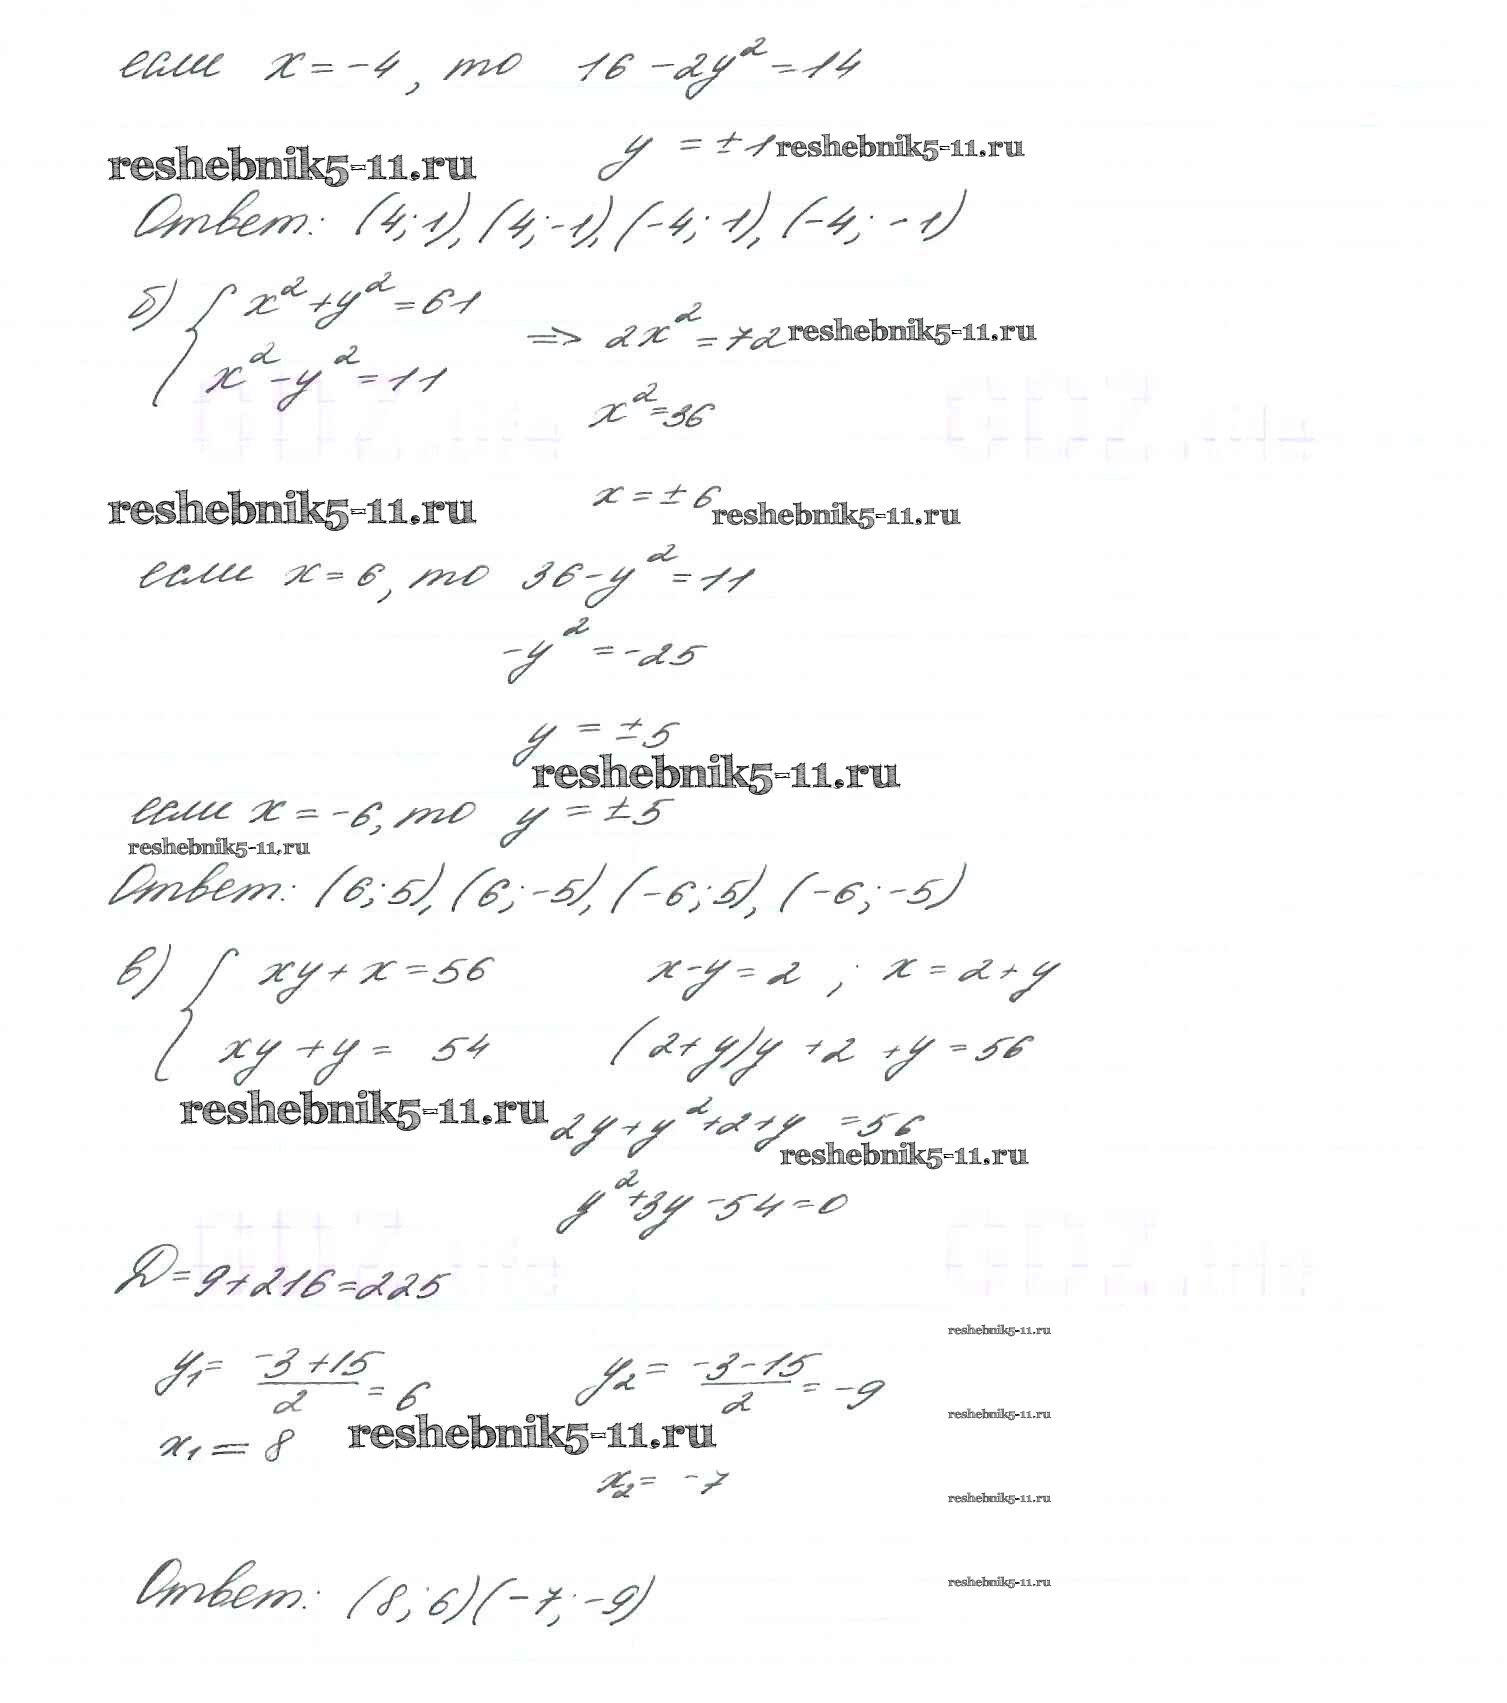 если x = -4, то 16 - 2y² = 14
y = ±1 reshebnik5-11.ru
reshebnik5-11.ru
Ответ: (4; 1), (4; -1), (-4; 1), (-4; -1)
б) { x² + y² = 61
x² - y² = 11
=> 2x² = 72 reshebnik5-11.ru
x² = 36
reshebnik5-11.ru
x = ±6
reshebnik5-11.ru
если x = 6, то 36 - y² = 11
-y² = -25
y = ±5
reshebnik5-11.ru
если x = -6, то y = ±5
reshebnik5-11.ru
Ответ: (6; 5), (6; -5), (-6; 5), (-6; -5)
в) { xy + x = 56
xy + y = 54
x - y = 2 ; x = 2 + y
(2 + y)y + 2 + y = 56
reshebnik5-11.ru
2y + y² + 2 + y = 56
reshebnik5-11.ru
y² + 3y - 54 = 0
D = 9 + 216 = 225
reshebnik5-11.ru
y₁ = (-3 + 15)/2 = 6 y₂ = (-3 - 15)/2 = -9
reshebnik5-11.ru
x₁ = 8
reshebnik5-11.ru
x₂ = -7
reshebnik5-11.ru
reshebnik5-11.ru
Ответ: (8; 6) (-7; -9)